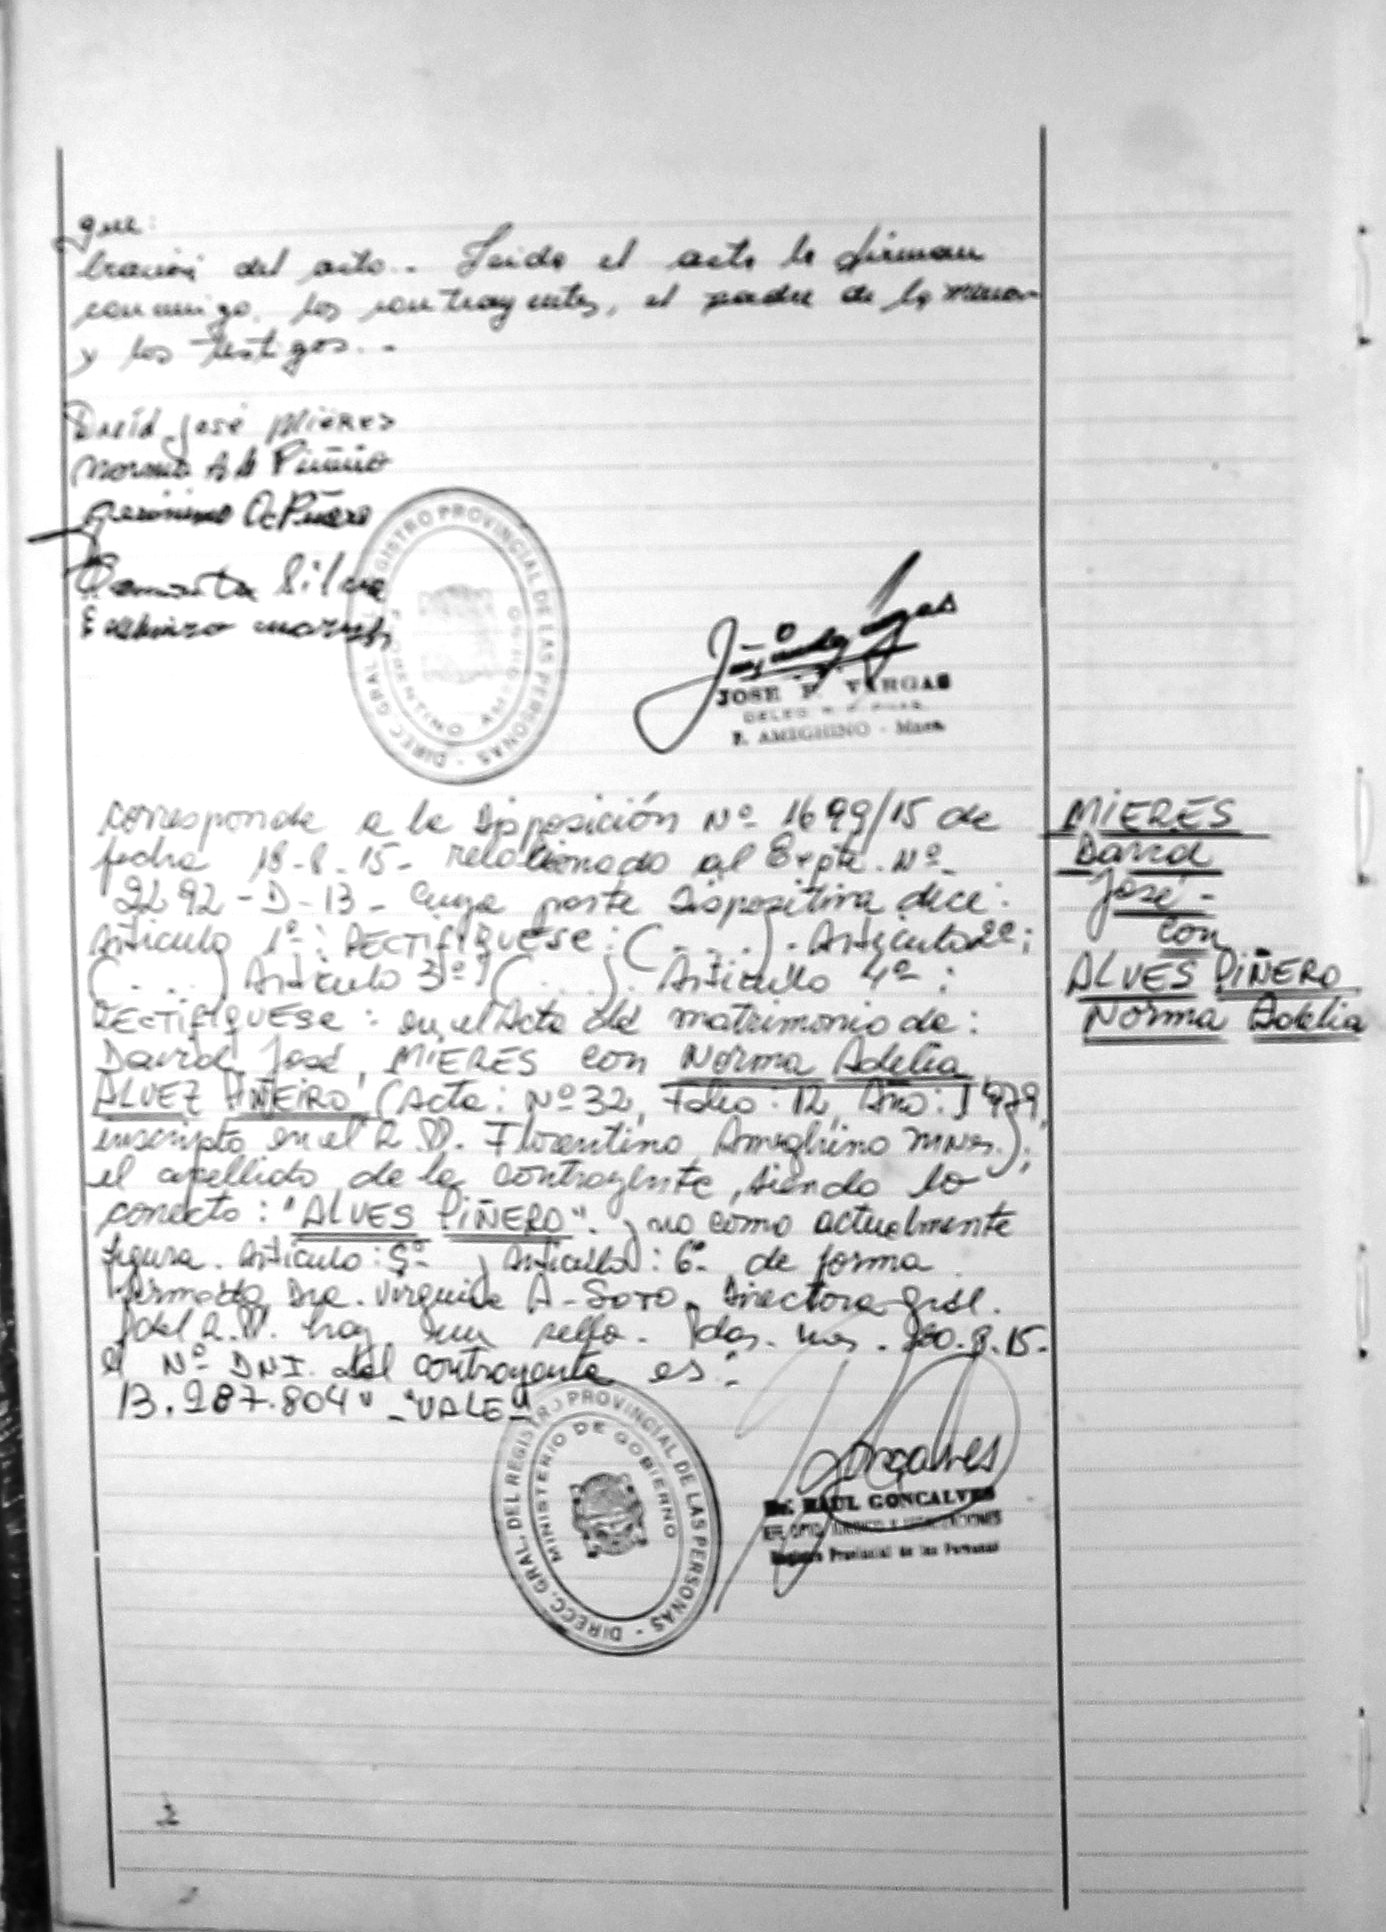 que:
bración del acto.. Leida el acta la firman
conmigo, los contrayentes, el padre de la menor
y los testigos. -
David José MiERES
Norma A de Piñeiro
Gerónimo A Piñero
Silva
DIRECC. GRAL. REGISTRO PROVINCIAL DE LAS PERSONAS -
JOSE F. VARGAS
F. AMEGHINO - Mnes.
Corresponde a la Disposición Nº 1699/15 de
fecha 18-8-15- relacionado al Expte. Nº
2292-D-13- Cuya parte Dispositiva dice:
Artículo 1º: RECTIFIQUESE: (....). Artículo 2º:
(....) Artículo 3º: (....). Artículo 4º:
RECTIFIQUESE: en el Acta de matrimonio de:
David José, MIERES con Norma Adelia
ALVEZ PIÑEIRO (Acta: Nº 32, Folio: 12, Año: 1979,
inscripto en el R.P. Florentino Ameghino mnes.);
el apellido de la contrayente, siendo lo
correcto: "ALVES PIÑERO". y no como actualmente
figura. Artículo: 5º- y Artículo: 6º- de forma
firmado Dra. Virginia A. Soto. Directora Gral.
del R.P. hay un sello. Pdas. mns. 20.8.15-
el Nº DNI. del contrayente es:
13.287.804" -"VALE"
MIERES
David
José -
con
ALVES PIÑERO
Norma Adelia
DIRECC. GRAL. DEL REGISTRO PROVINCIAL DE LAS PERSONAS -
MINISTERIO DE GOBIERNO
Goncalves
Dr. RAUL GONCALVES
Registro Provincial de las Personas